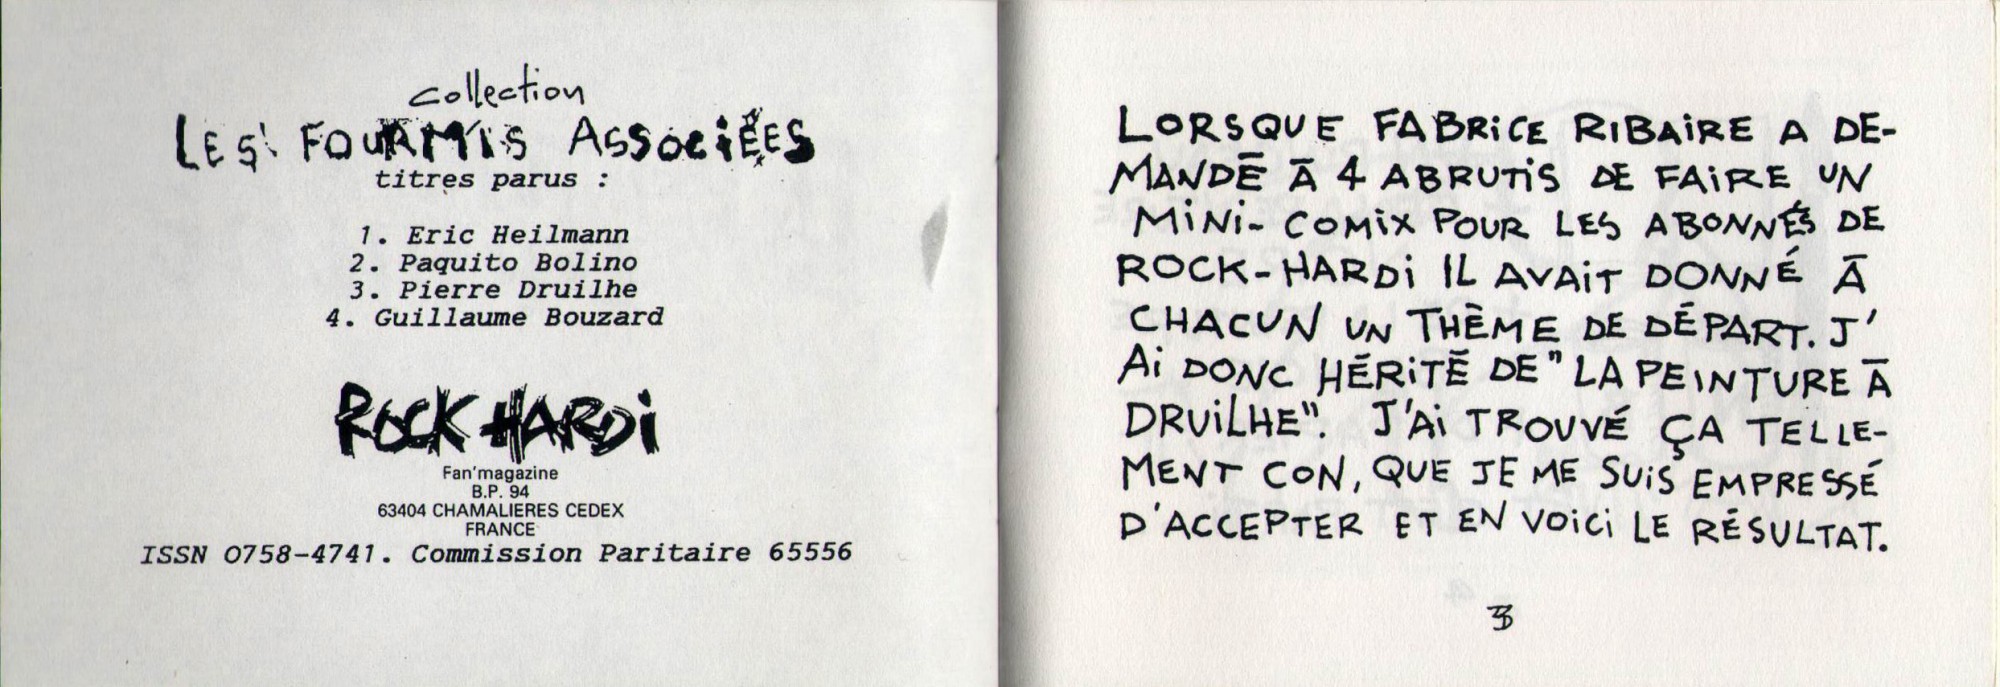 collection
LES FOURMIS ASSOCIÉES
titres parus :
1. Eric Heilmann
2. Paquito Bolino
3. Pierre Druilhe
4. Guillaume Bouzard
ROCK HARDI
Fan'magazine
B.P. 94
63404 CHAMALIERES CEDEX
FRANCE
ISSN 0758-4741. Commission Paritaire 65556
LORSQUE FABRICE RIBAIRE A DE-
MANDÉ À 4 ABRUTIS DE FAIRE UN
MINI-COMIX POUR LES ABONNÉS DE
ROCK-HARDI IL AVAIT DONNÉ À
CHACUN UN THÈME DE DÉPART. J'
AI DONC HÉRITÉ DE "LA PEINTURE À
DRUILHE". J'AI TROUVÉ ÇA TELLE-
MENT CON, QUE JE ME SUIS EMPRESSÉ
D'ACCEPTER ET EN VOICI LE RÉSULTAT.